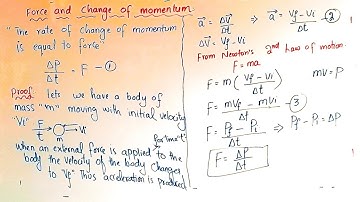 Force and Change of momentum
"The rate of change of momentum
is equal to force"
ΔP/Δt = F - ①
Proof lets we have a body of
mass "m" moving with initial velocity
"Vi" F/t → m → Vi
for time "t"
when an external force is applied to the
body the velocity of the body changes
to "Vf" Thus acceleration is produced
a⃗ = ΔV⃗/Δt ⇒ a⃗ = Vf - Vi/Δt ②
ΔV⃗ = Vf - Vi
From Newton's 2nd Law of motion.
F = ma
F = m(Vf - Vi/Δt) mV = P
F = mVf - mVi/Δt - ③
F = Pf - Pi/Δt ⇒ Pf - Pi = ΔP
F = ΔP/Δt